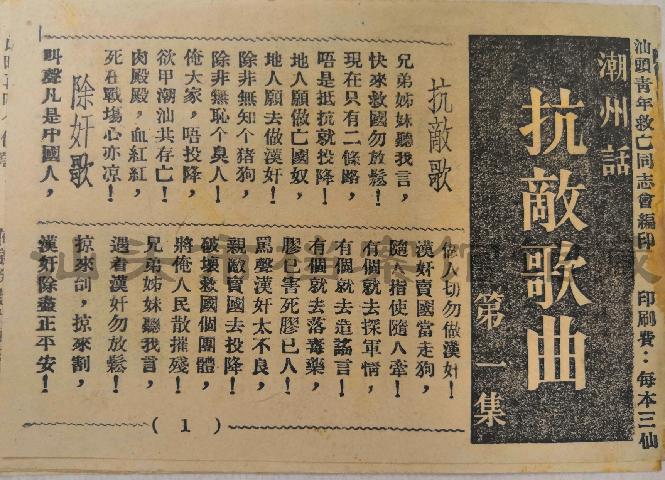 汕頭青年救亡同志會編印 印刷費：每本三仙
潮州話
抗敵歌曲
第一集
抗敵歌
兄弟姊妹聽我言，
快來救國勿放鬆！
現在只有二條路，
唔是抵抗就投降！
地人願做亡國奴，
地人願去做漢奸！
除非無知个豬狗，
除非無恥个臭人！
俺大家，唔投降，
欲甲潮汕共存亡！
肉殿殿，血紅紅，
死在戰場心亦凉！
除奸歌
叫聲凡是中國人，
做人切勿做漢奸！
漢奸賣國當走狗，
隨人指使隨人牽！
有個就去探軍情，
有個就去造謠言！
有個就去落毒藥，
膠已害死膠已人！
罵聲漢奸太不良，
親敵賣國去投降！
破壞救國個團體，
將俺人民散摧殘！
兄弟姊妹聽我言，
遇着漢奸勿放鬆！
掠來刣，掠來割，
漢奸除盡正平安！
(1)